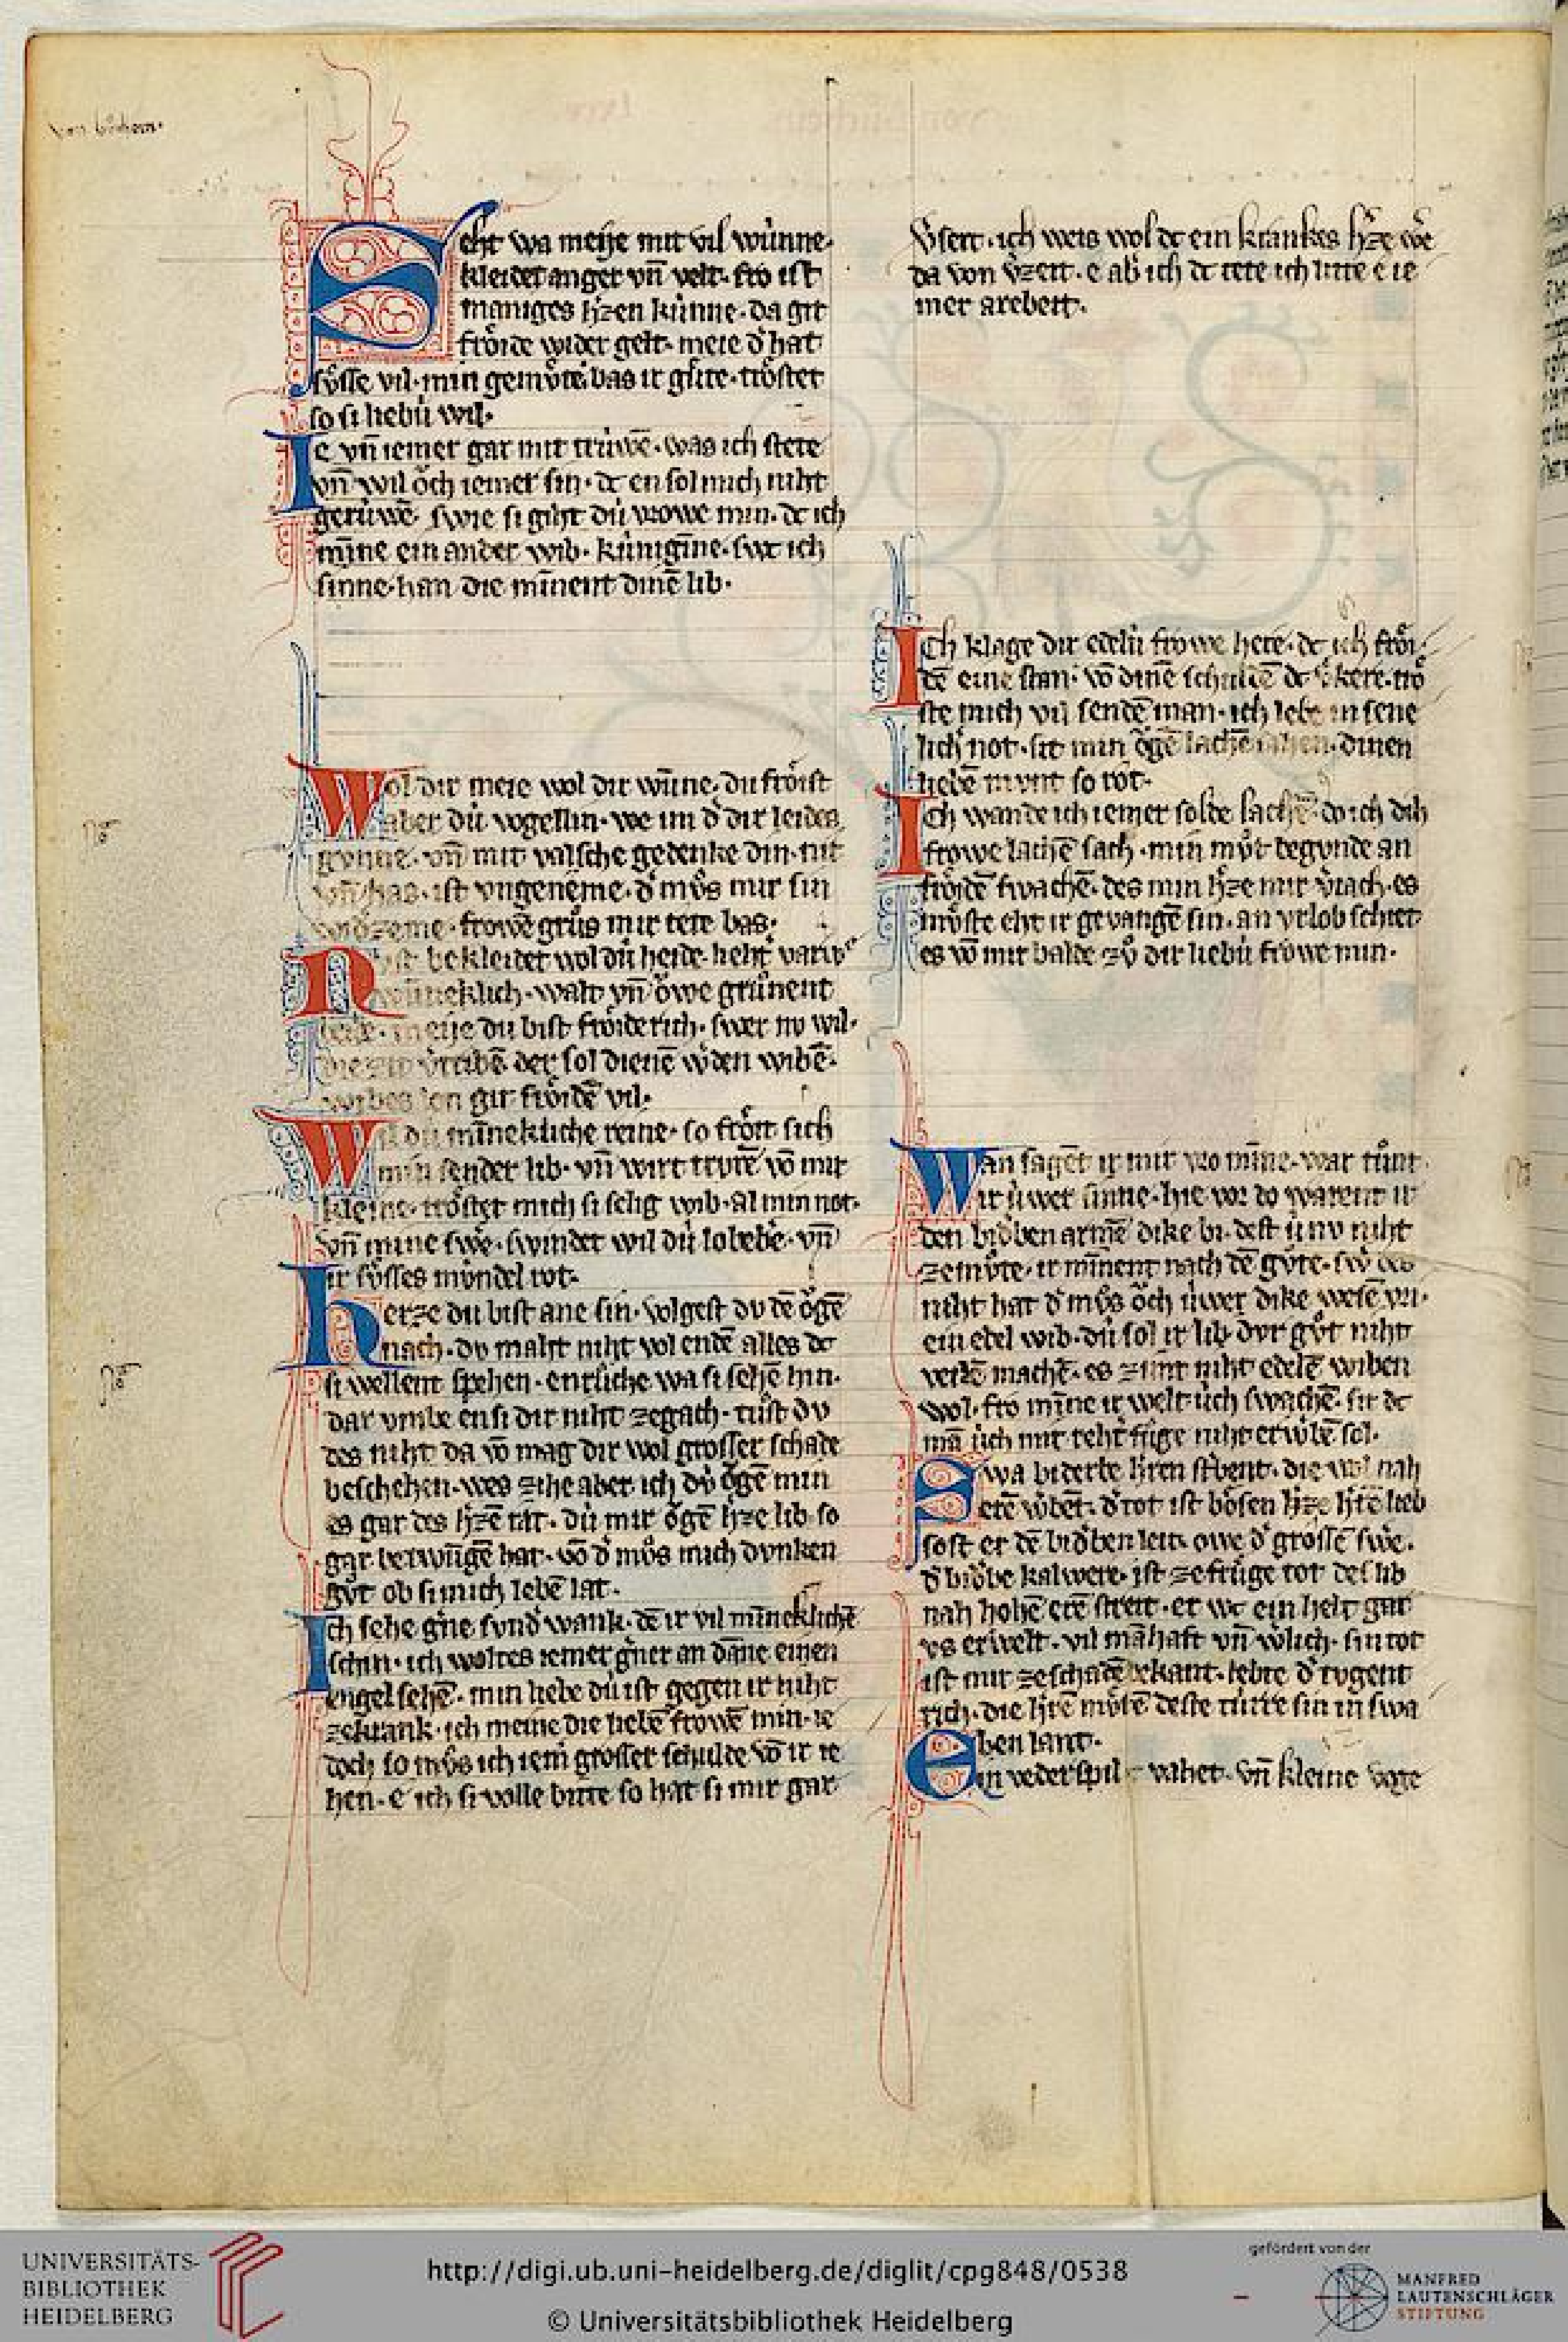 von bůchein·
Seht wa meije mit vil wunne·
kleidet anger vn̄ velt· fro ist
maniges h̾zen kúnne· da git
froͤide wider gelt· meie d̾ hat
suͤsse vil· min gemuͤte bas ir guͤte· troͤstet
so si liebú wil·
Ie vn̄ iemer gar mit trúwē· was ich stete
vn̄ wil oͧch iemer sin· dc en sol mich niht
gerúwē· swie si giht dú vrowe min· dc ich
mīne ein ander wib· kúnigīne· swc ich
sinne· han die mīnent dinē lib·
Wol dir meie wol dir wūne· du froͤist
aber dú vogellin· we im d̾ dir leides
gvnne· vn̄ mit valsche gedenke din· nit
vn̄ has· ist vngeneme· d̾ mvͦs mir sin
wid̾zeme· frowē grůs mir tete bas·
bekleidet wol dú heide· lieht varwe
wūneklich· walt vn̄ oͧwe grůnent
beide· meije du bist froͤide rich· swer nv wil·
die zit v̾tribē der sol dienē w̾den wibē·
wibes lon git froͤidē vil·
Wil dú mīnekliche reine· so froͤit sich
min sender lib· vn̄ wirt trvrē vō mir
kleine· troͤstet mich si selig wib· al min not·
vn̄ mine swe̾· swindet wil dú lobebe̾· vn̄
ir suͤsses mv́ndel rot·
herze du bist ane sin· volgest dv dē oͧgē
nach· dv maht niht vol endē alles dc
si wellent spehen· entliche wa si sehē hin·
dar vmbe ensi dir niht zegach· tůst dv
des niht da vō mag dir wol grosser schade
beschehen· wes zihe aber ich dv́ oͧgē min
es gar des h̾zē rat· dú mir oͧgē h̾ze lib so
gar betwūgē hat· vō d̾ mvͦs mich dvnken
gvͦt ob si mich lebē lat·
Ich sehe g̾ne svnd̾ wank· dē ir vil mīneklichē
schin· ich woltes iemer g̾ner an dāne einen
engel sehē· min liebe dú ist gegen ir niht
zekrank· ich meine die liebē frowē min· ie
doch so mvͦs ich iem̾ grosser schulde vō ir ie
hen· e ich si volle bitte so hat si mir gar
v̾seit· ich weis wol dc ein krankes h̾ze we̾
da von v̾zeit· e ab ich dc tete ich litte e ie
mer arebeit·
Ich klage dir edelú frowe here· dc ich froͤi·
dē eine stan· vō dinē schuldē dc v̾kere· troͤ
ste mich vil sendē man· ich lebe in sene
licher not· sit min oͧgē lachē sahen· dinen
liebē mvnt so rot·
Ich wande ich iemer solde lachē· do ich dich
frowe lachē sach· min mvͦt begvnde an
froͤidē swachē· des min h̾ze mir v̾iach· es
mvͤste eht ir gevangē sin· an vrlob schiet
es vō mir balde zvͦ dir liebú frowe min·
Wan sagēt ir mir vro mīne· war tůnt
ir úwer sinne· hie vor do warent ir
den bid̾ben armē dike bi· dest ú nv niht
zemvͤte· ir mīnent nach dē gvͤte· sw̾ des
niht hat d̾ mvͦs oͧch úwer dike wesē vri·
ein edel wib· dú sol ir lib dvr gvͦt niht
veile machē· es zimt niht edelē wiben
wol· fro mīne ir welt úch swachē· sit dc
mā úch mit reht̾ fůge niht erw̾bē sol·
Swa biderbe h̾ren st̾bent· die wol nah
erē w̾bēt· d̾ tot ist boͤsen h̾ze h̾tē lieb
sost er dē bid̾ben leit· owe d̾ grossē swe̾·
d̾ bid̾be kalwere· ist ze frůge tot des lib
nah hohē erē streit· er wc ein helt gar
vs erwelt· vil māhaft vn̄ w̾lich· sin tot
ist mir ze schadē bekant· lebte d̾ tvgent
rich· die h̾rē mv́sē deste túrre sin in swa
ben lant·
Ein vederspil vahet· vn̄ kleine voge
UNIVERSITÄTS-
BIBLIOTHEK
HEIDELBERG
http://digi.ub.uni-heidelberg.de/diglit/cpg848/0538
© Universitätsbibliothek Heidelberg
gefördert von der
MANFRED
LAUTENSCHLÄGER
STIFTUNG